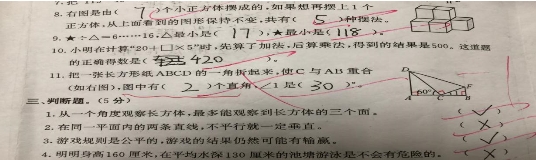 8. 右图是由( 7 )个小正方体摆成的,如果想再摆上1个
正方体,从上面看到的图形保持不变,共有( 5 )种摆法。
9. ★÷△=6……16,△最小是( 17 ),★最小是( 118 )。
10. 小明在计算“20+□×5”时,先算了加法,后算乘法,得到的结果是500。这道题
的正确得数是( 420 )。
11. 把一张长方形纸ABCD的一角折起来,使C与AB重合
(如右图),图中有( 2 )个直角,∠1是( 30 )°。
D
F
60°
A
B
三、判断题。(5分)
1. 从一个角度观察长方体,最多能观察到长方体的三个面。 ( ✓ )
2. 在同一平面内的两条直线,不平行就一定垂直。 ( × )
3. 游戏规则是公平的,游戏的结果仍然可能有输赢。 ( ✓ )
4. 明明身高160厘米,在平均水深130厘米的池塘游泳是不会有危险的。 ( × )